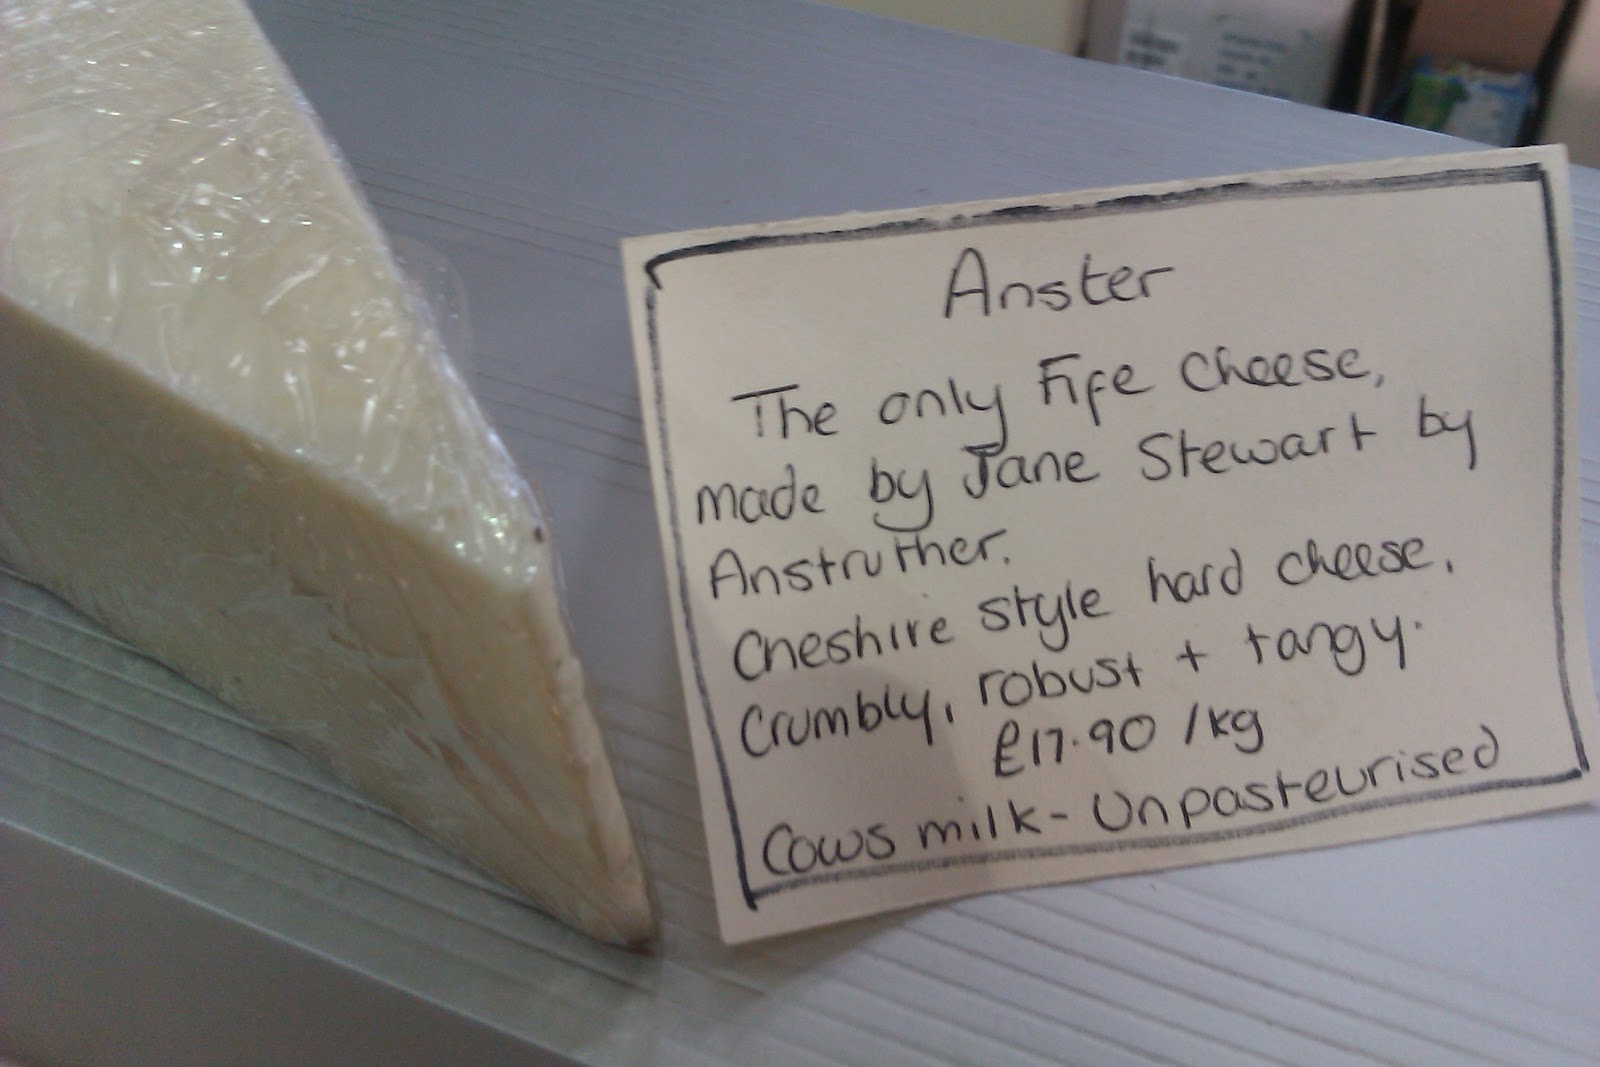 Anster
The only Fife Cheese,
made by Jane Stewart by
Anstruther.
Cheshire style hard cheese.
Crumbly, robust + tangy.
£17.90 /kg
Cows milk - Unpasteurised